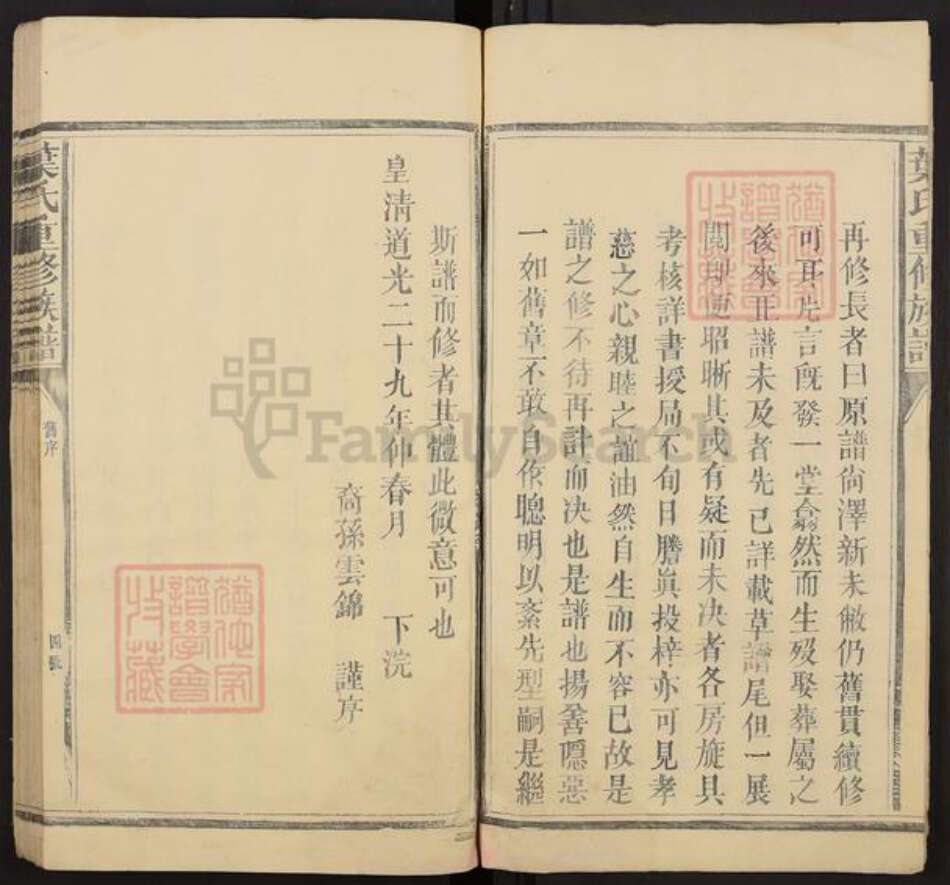 葉氏重修族譜
再修長者曰原譜尙澤新未敝仍舊貫續修
可耳片言旣發一堂翕然而生歿娶葬屬之
後來正譜未及者先已詳載草譜尾但一展
閱卽便昭晰其或有疑而未決者各房旋具
考核詳書授局不旬日謄眞投梓亦可見孝
慈之心親睦之誼油然自生而不容已故是
譜之修不待再計而决也是譜也揚善隱惡
一如舊章不敢自作聰明以紊先型嗣是繼
斯譜而修者其體此微意可也
皇清道光二十九年仲春月 下浣
裔孫雲錦 謹序
葉氏重修族譜
舊序
四號
猶他家
譜學會
收藏
猶他家
譜學會
收藏
FamilySearch